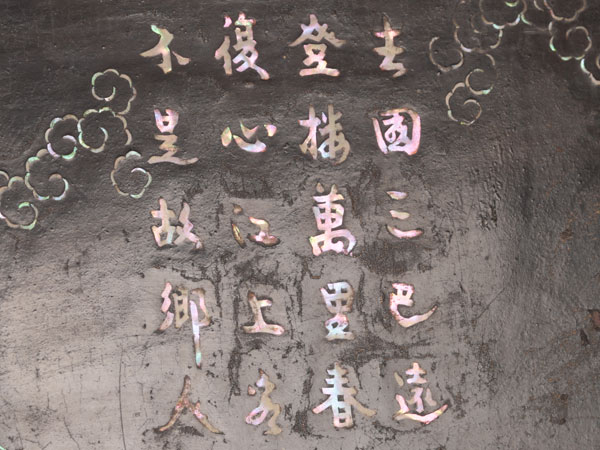 去國三巴遠
登楼萬里春
傷心江上客
不是故鄉人